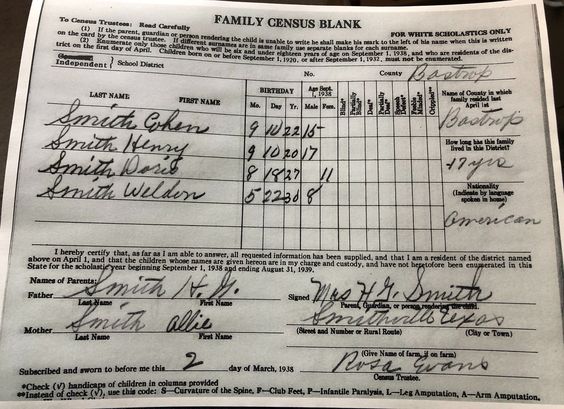 FAMILY CENSUS BLANK
To Census Trustees: Read Carefully
FOR WHITE SCHOLASTICS ONLY
(1) If the parent, guardian or person rendering the child is unable to write he shall make his mark to the left of his name when this is written
on the card by the census trustee. If different surnames are in same family use separate blanks for each surname.
(2) Enumerate only those children who will be six and under eighteen years of age on September 1, 1938, and who are residents of the dis-
trict on the first day of April. Children born on or before September 1, 1920, or after September 1, 1932, must not be enumerated.
Independent } School District
No. County Bastrop
LAST NAME FIRST NAME
BIRTHDAY
Mo. Day Yr.
Age Sept. 1, 1938
Male Fem.
Blind*
Partially Blind*
Deaf*
Partially Deaf*
Speech Defect*
Feeble Minded*
Crippled**
Name of County in which family resided last April 1st
Bastrop
How long has this family lived in this District?
17 yrs
Nationality
(Indicate by language spoken in home)
American
Smith Cohen 9 10 22 15
Smith Henry 9 10 20 17
Smith Doris 8 18 27 11
Smith Weldon 5 22 30 8
I hereby certify that, as far as I am able to answer, all requested information has been supplied, and that I am a resident of the district named
above on April 1, and that the children whose names are given hereon are in my charge and custody, and have not heretofore been enumerated in this
State for the scholastic year beginning September 1, 1938 and ending August 31, 1939.
Names of Parents:
Father Smith H. G.
Last Name First Name
Signed Mrs H. G. Smith
Parent, Guardian, or person rendering child
Mother Smith Allie
Last Name First Name
Smithville Texas
(Street and Number or Rural Route) (City or Town)
(Give Name of farm, if on farm)
Subscribed and sworn to before me this 2 day of March, 1938
Rosa Evans
Census Trustee.
*Check (√) handicaps of children in columns provided
**Instead of check (√), use this code: S—Curvature of the Spine, F—Club Feet, P—Infantile Paralysis, L—Leg Amputation, A—Arm Amputation.